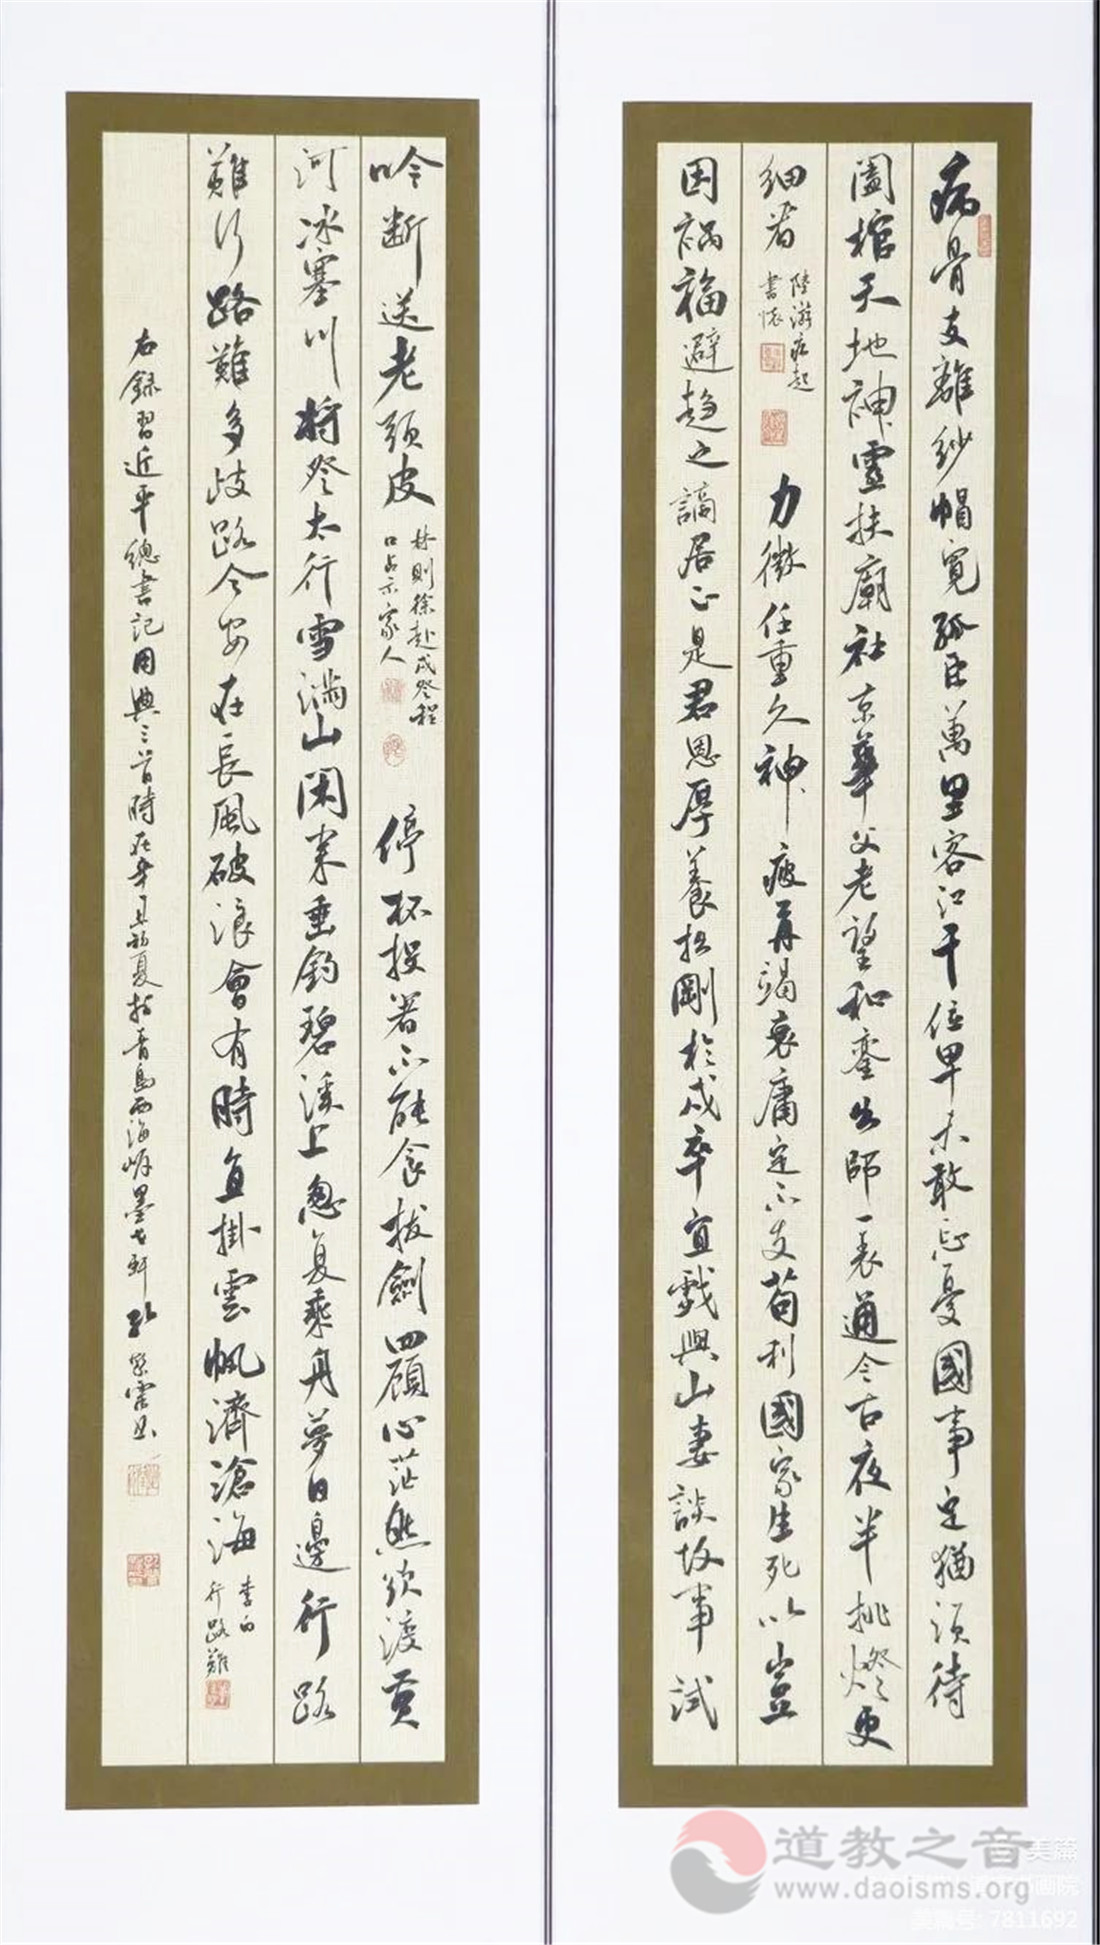 病骨支離紗帽寬孤臣萬里客江干位卑未敢忘憂國事定猶須待
闔棺天地神靈扶廟社京華父老望和鑾出師一表通今古夜半挑燈更
細看
陸游病起
書懷
力微任重久神疲再竭衰庸定不支苟利國家生死以豈
因禍福避趨之謫居正是君恩厚養拙剛於戍卒宜戲與山妻談故事試
吟斷送老頭皮
林則徐赴戍登程
口占示家人
停杯投箸不能食拔劍四顧心茫然欲渡黃
河冰塞川將登太行雪滿山閑來垂釣碧溪上忽复乘舟夢日邊行路
難行路難多歧路今安在長風破浪會有時直掛雲帆濟滄海
李白
行路難
右錄習近平總書記用典三首時在辛丑初夏於青島西海岸墨
道教之音
www.daoisms.org
美篇
美篇号: 7811692